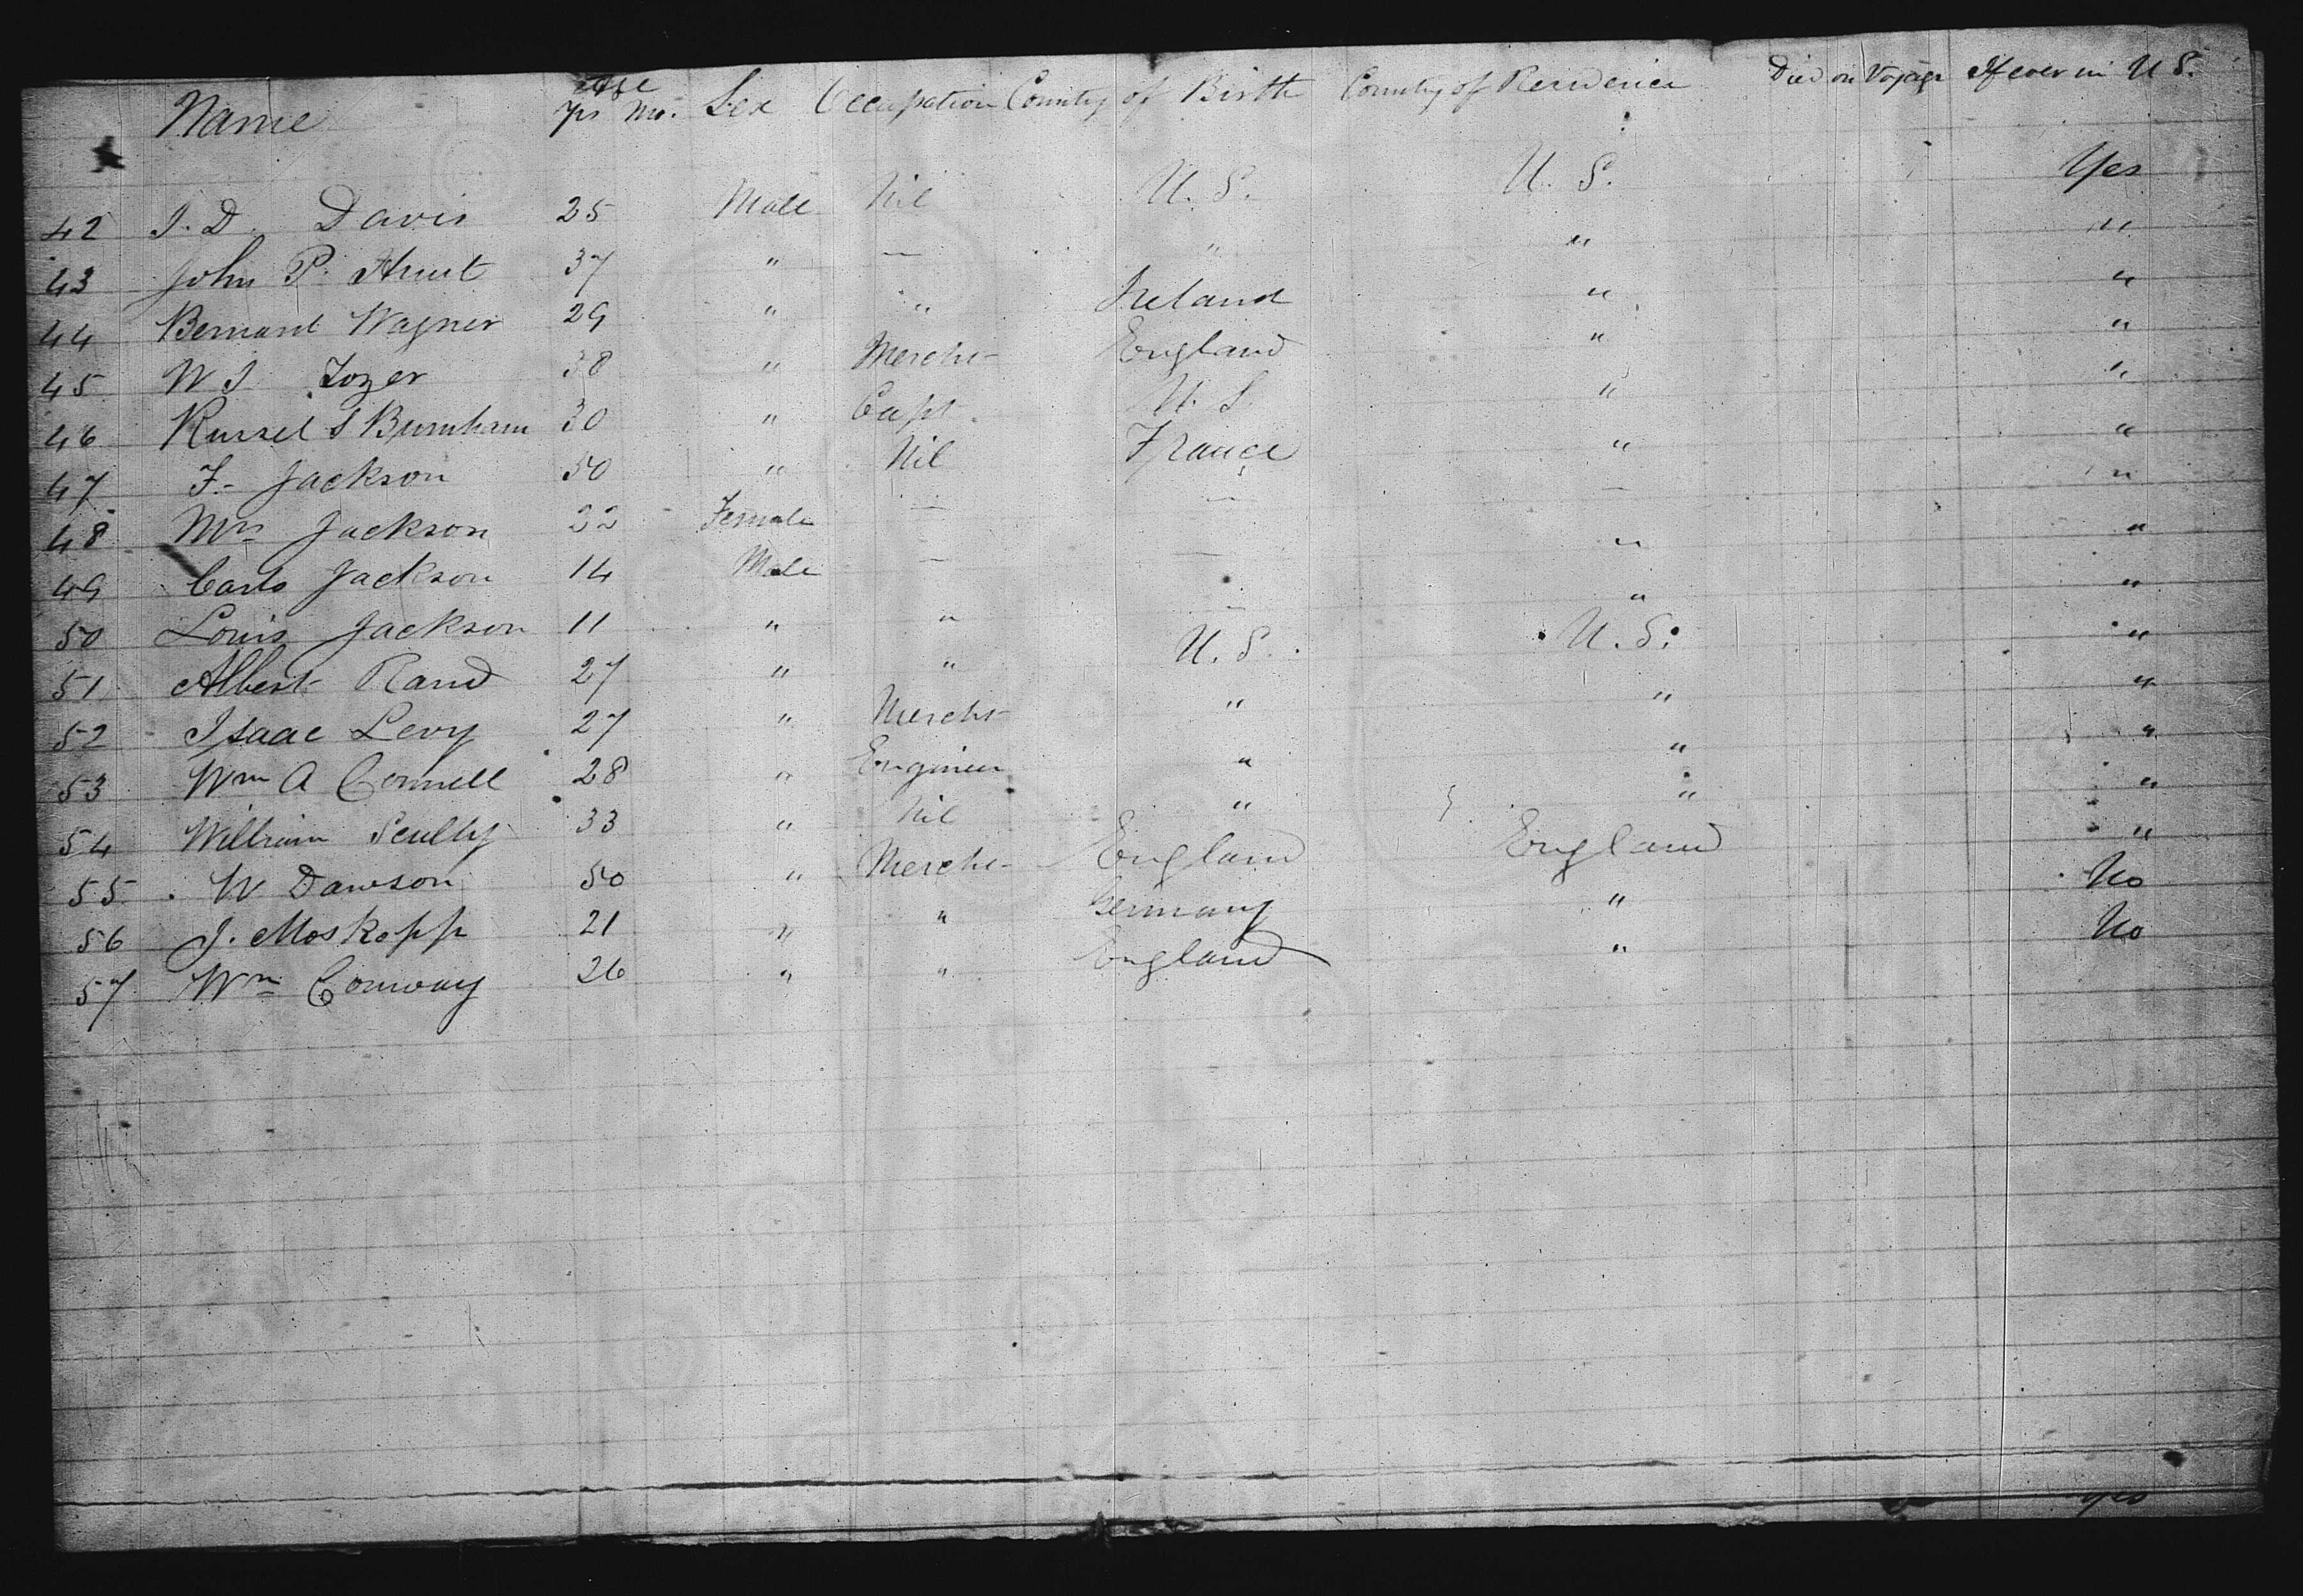 Name Age Yrs Mo. Sex Occupation Country of Birth Country of Residence Died on Voyage If ever in U S.
42 J. D. Davis 25 Male Nil U. S. U. S. Yes
43 John P. Hunt 37 " — " " "
44 Bernard Wagner 29 " " Ireland " "
45 W J Tozer 38 " Mercht England " "
46 Russel S Burnham 30 " Capt U. S. " "
47 F. Jackson 50 " Nil France " "
48 Mrs Jackson 22 Female — — — "
49 Carlo Jackson 14 Male — — " "
50 Louis Jackson 11 " " — " "
51 Albert Rand 27 " " U. S. U. S. "
52 Isaac Levy 27 " Mercht " " "
53 Wm A Connell 28 " Engineer " " "
54 William Scully 33 " Nil " " "
55 W Dawson 50 " Mercht England England "
56 J. Moskopp 21 " " Germany " No
57 Wm Conway 26 " " England " No
yes